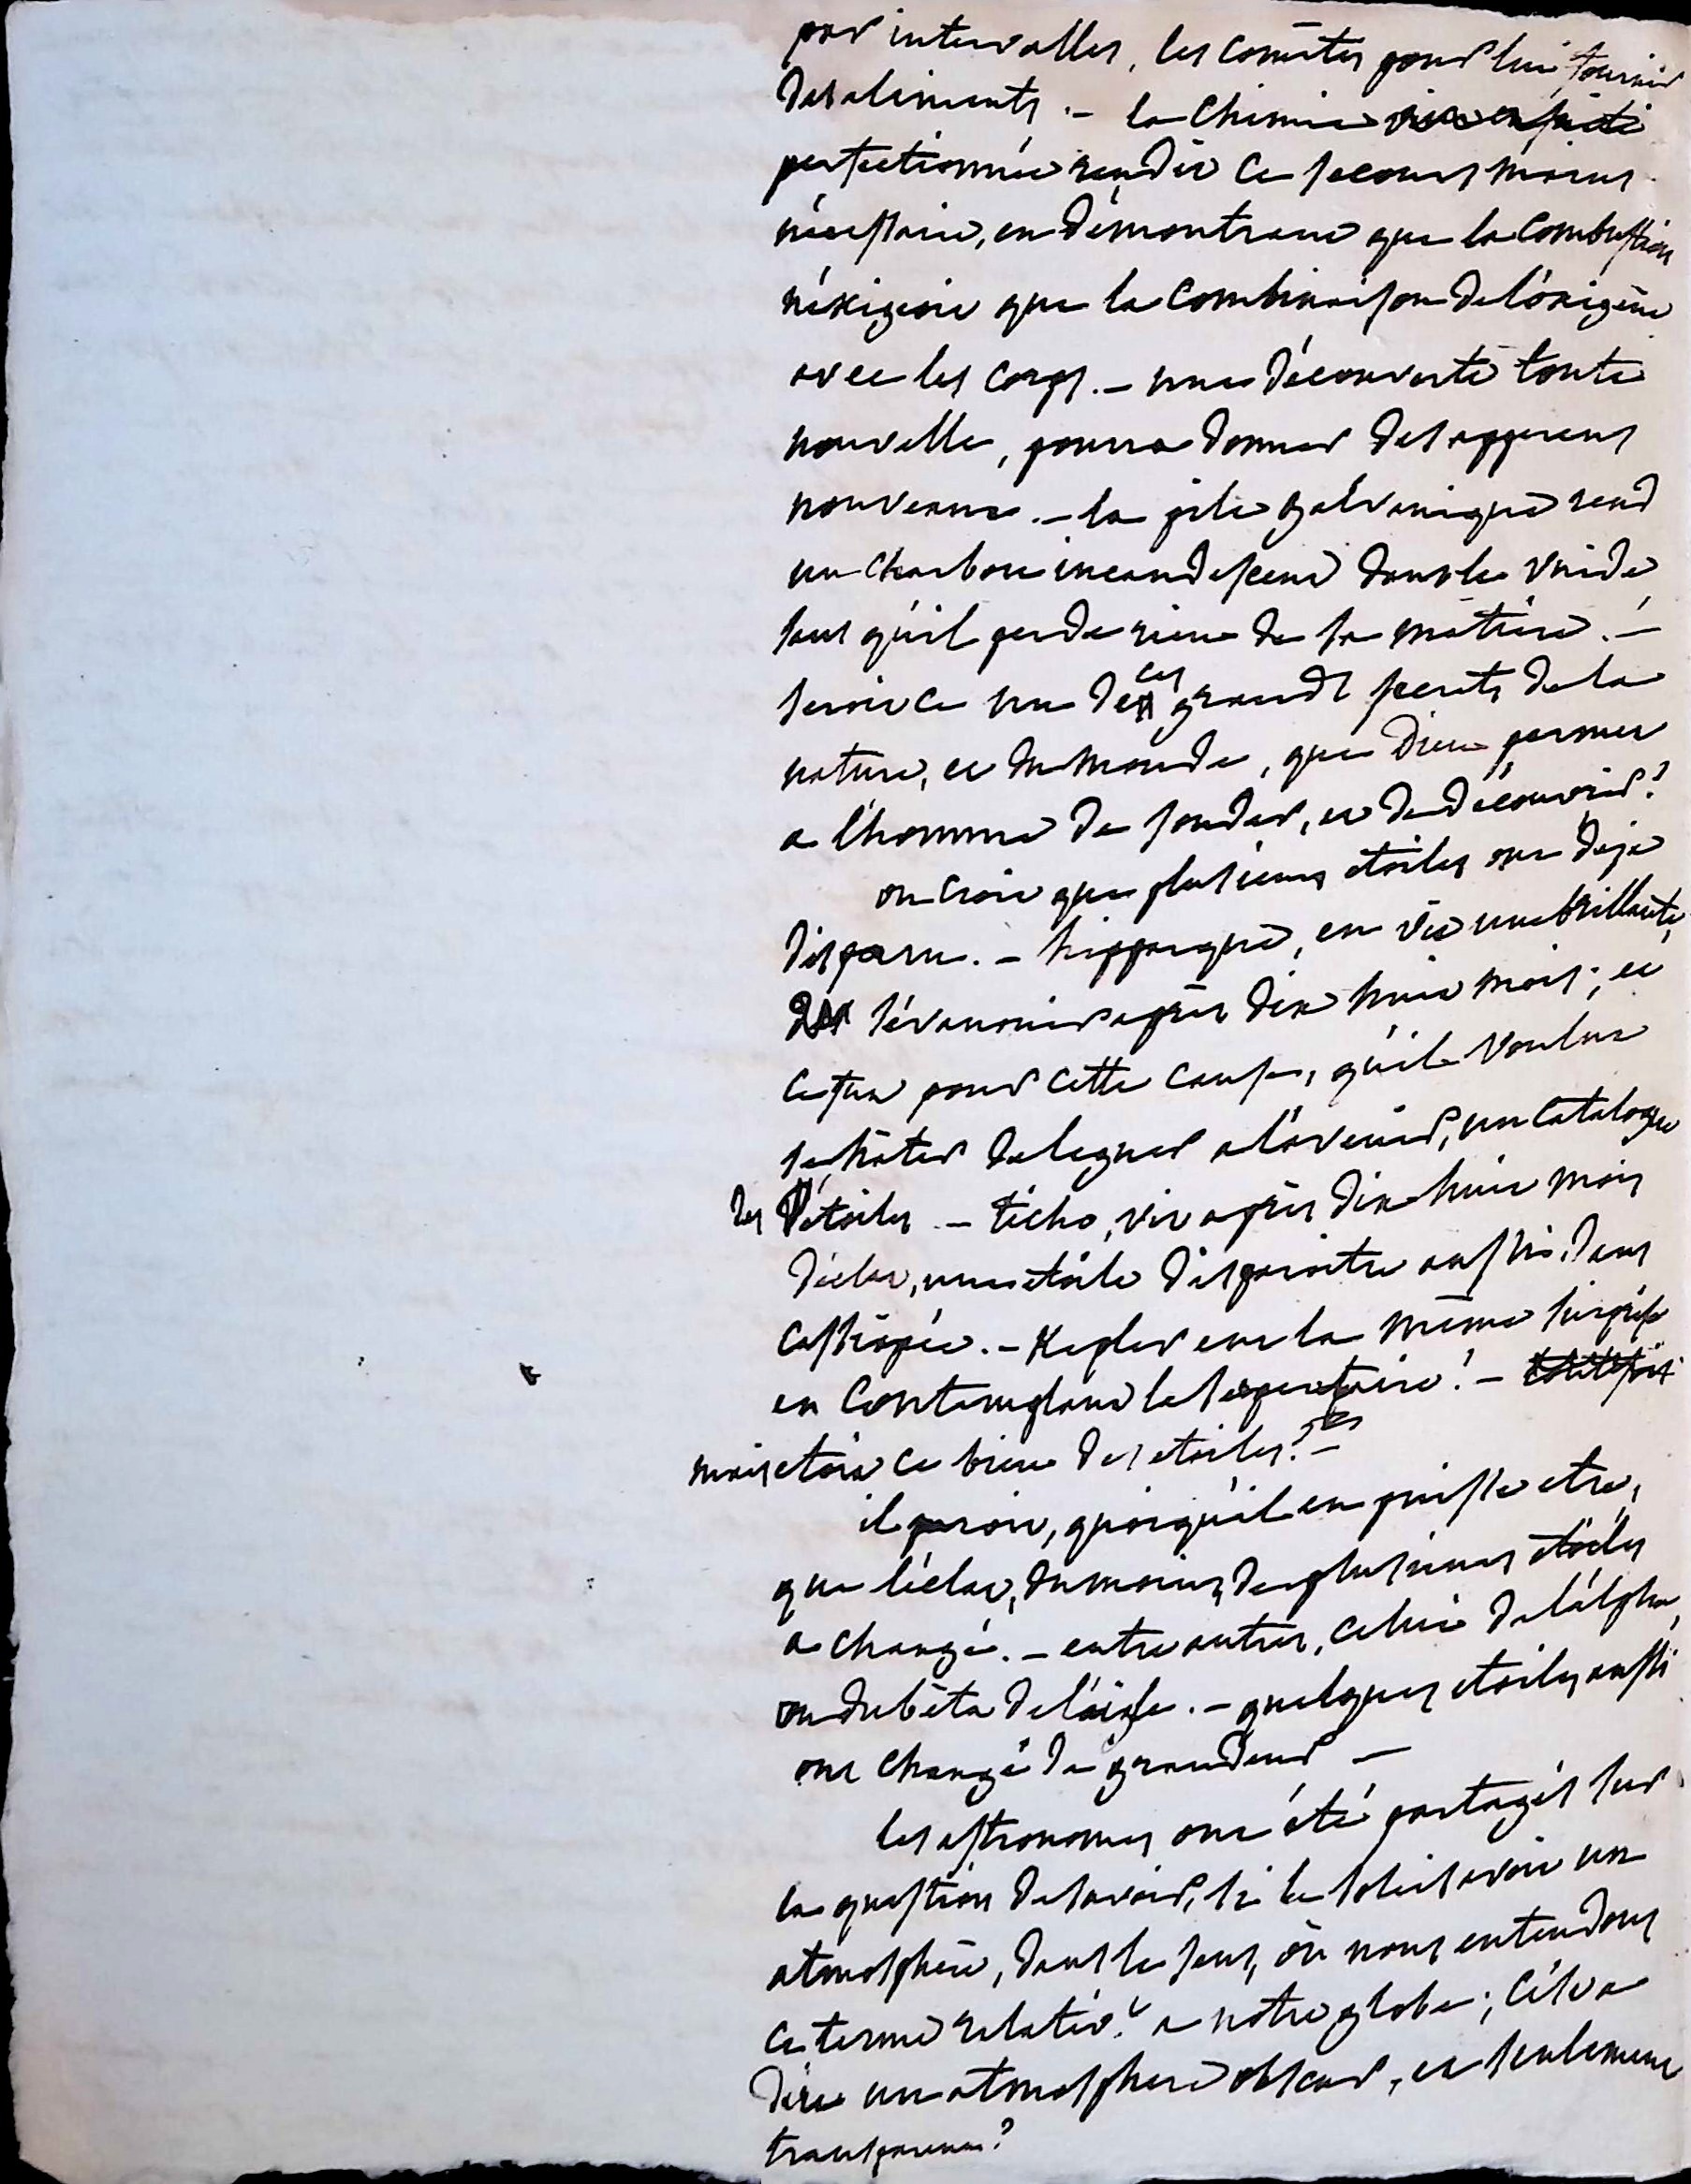 par intervalles, les comètes pour lui fournir
des aliments. – la chimie
perfectionnée rendit ce secours moins
nécessaire, en démontrant que la combustion
n'éxigeoit que la combinaison de l'oxigène
avec les corps. – une découverte toute
nouvelle, pourra donner des apperçus
nouveaux. – la pile galvanique rend
un charbon incandescent dans le vuide
sans qu'il perde rien de sa matière. –
seroit ce un de ces grands secrets de la
nature, et du monde, que Dieu permet
a l'homme de sonder, et de découvrir?
on croit que plusieurs etoiles ont déja
disparu. – hipparque, en vit une brillante,
s'évanouir après dix huit mois; et
ce fut pour cette cause, qu'il voulut
se hâter de leguer a l'avenir, un catalogue
des étoiles – ticho, vit après dix huit mois
d'éclat, une étoile disparoitre aussi, dans
cassiopée. – Kepler eut la même surprise
en contemplant le serpentaire! –
mais etoit ce bien des etoiles? –
il paroit, quoiqu'il en puisse etre,
que l'éclat, du moins, de plusieurs étoiles
a changé. – entre autres, celui de l'alpha,
ou du bèta de l'aigle. – quelques etoiles aussi
ont changé de grandeur –
les astronomes ont été partagés sur
la question de savoir, si le soleil avoit un
atmosphère, dans le sens, où nous entendons
ce terme relativ.t a notre globe; c'est a
dire un atmosphere obscur, et seulement
transparent?